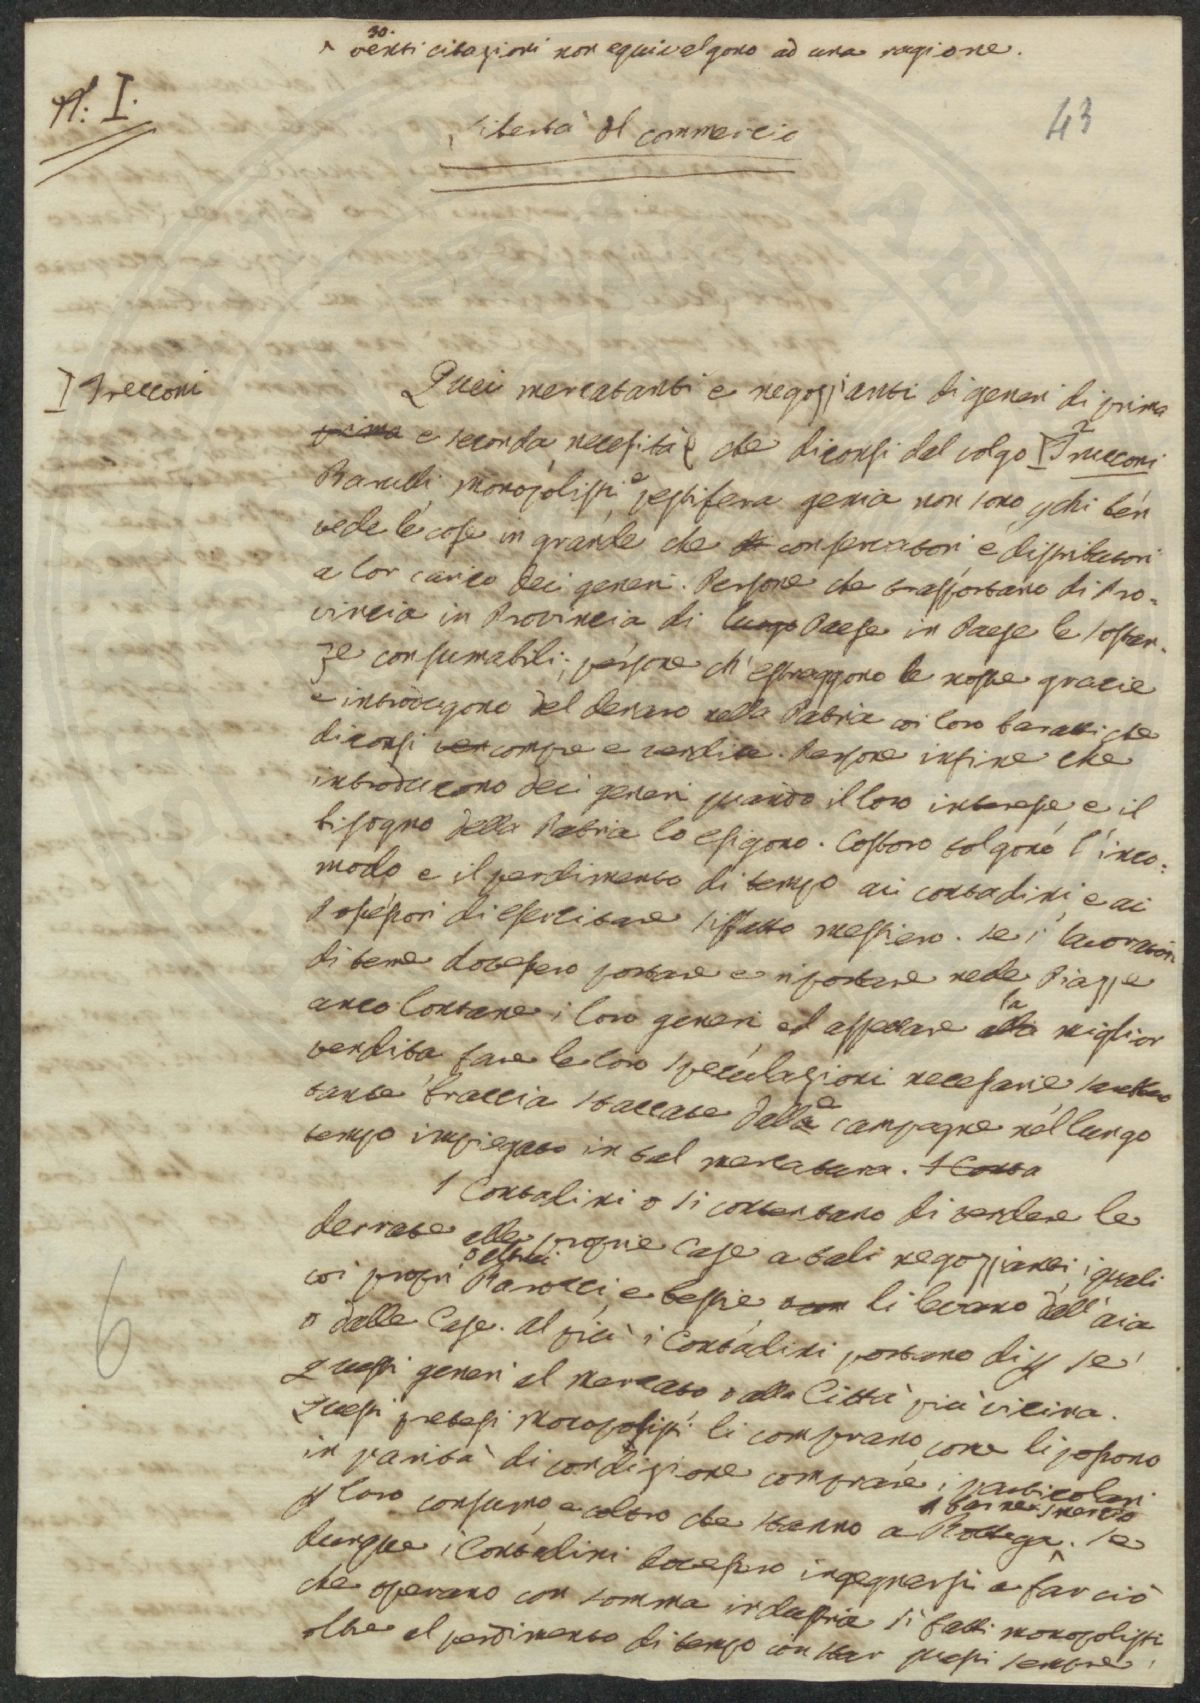 30.
venti citazioni non equivalgono ad una ragione.
N: I.
43
Libertà di commercio
I Trecconi
Quei mercatanti e negozzianti di generi di prima
prima e seconda necessità che diconsi dal volgo Trecconi
Barulli, Monopolisti, e pestifera genia non sono p chi ben
vede le cose in grande che conservatori e distributori
a lor carico dei generi. Persone che trasportano di Pro=
vincia in Provincia di luogo Paese in Paese le sostan=
ze consumabili; persone ch'estraggono le nostre grascie
e introducono del denaro nella Patria coi loro baratti che
diconsi ven compre e vendite. Persone infine che
introducono dei generi quando il loro interesse e il
bisogno della Patria lo esigono. Costoro tolgono l'inco=
modo e il perdimento di tempo ai contadini, e ai
Possessori di esercitare siffatto mestiero. Se i lavoratori
di terre dovessero portare e riportare nelle Piazze
anco lontane i loro generi ed aspettare alla la miglior
vendita, fare le loro speculazioni necessarie,
tante braccia staccate dalla e campagne nel lungo
tempo impiegato in tal mercatura. I Conta
I Contadini o si contentano di vendere le
derrate alle proprie Case a tali negozzianti, i quali
coi propri o altrui Barocci, e bestie, li levano dall'aia
o dalle Case. Al più i Contadini portano di p se'
questi generi al Mercato, o alla Città più vicina.
Questi pretesi Monopolisti li comprano, come li possono
in parità di condizione comprare i particolari
p loro consumo, e coloro che stanno a Bottega. Se
p farne smercio
dunque i Contadini dovessero ingegnarsi a far ciò
che operano con somma industria sì fatti monopolisti
oltre al perdimento di tempo con star questi sempre
6